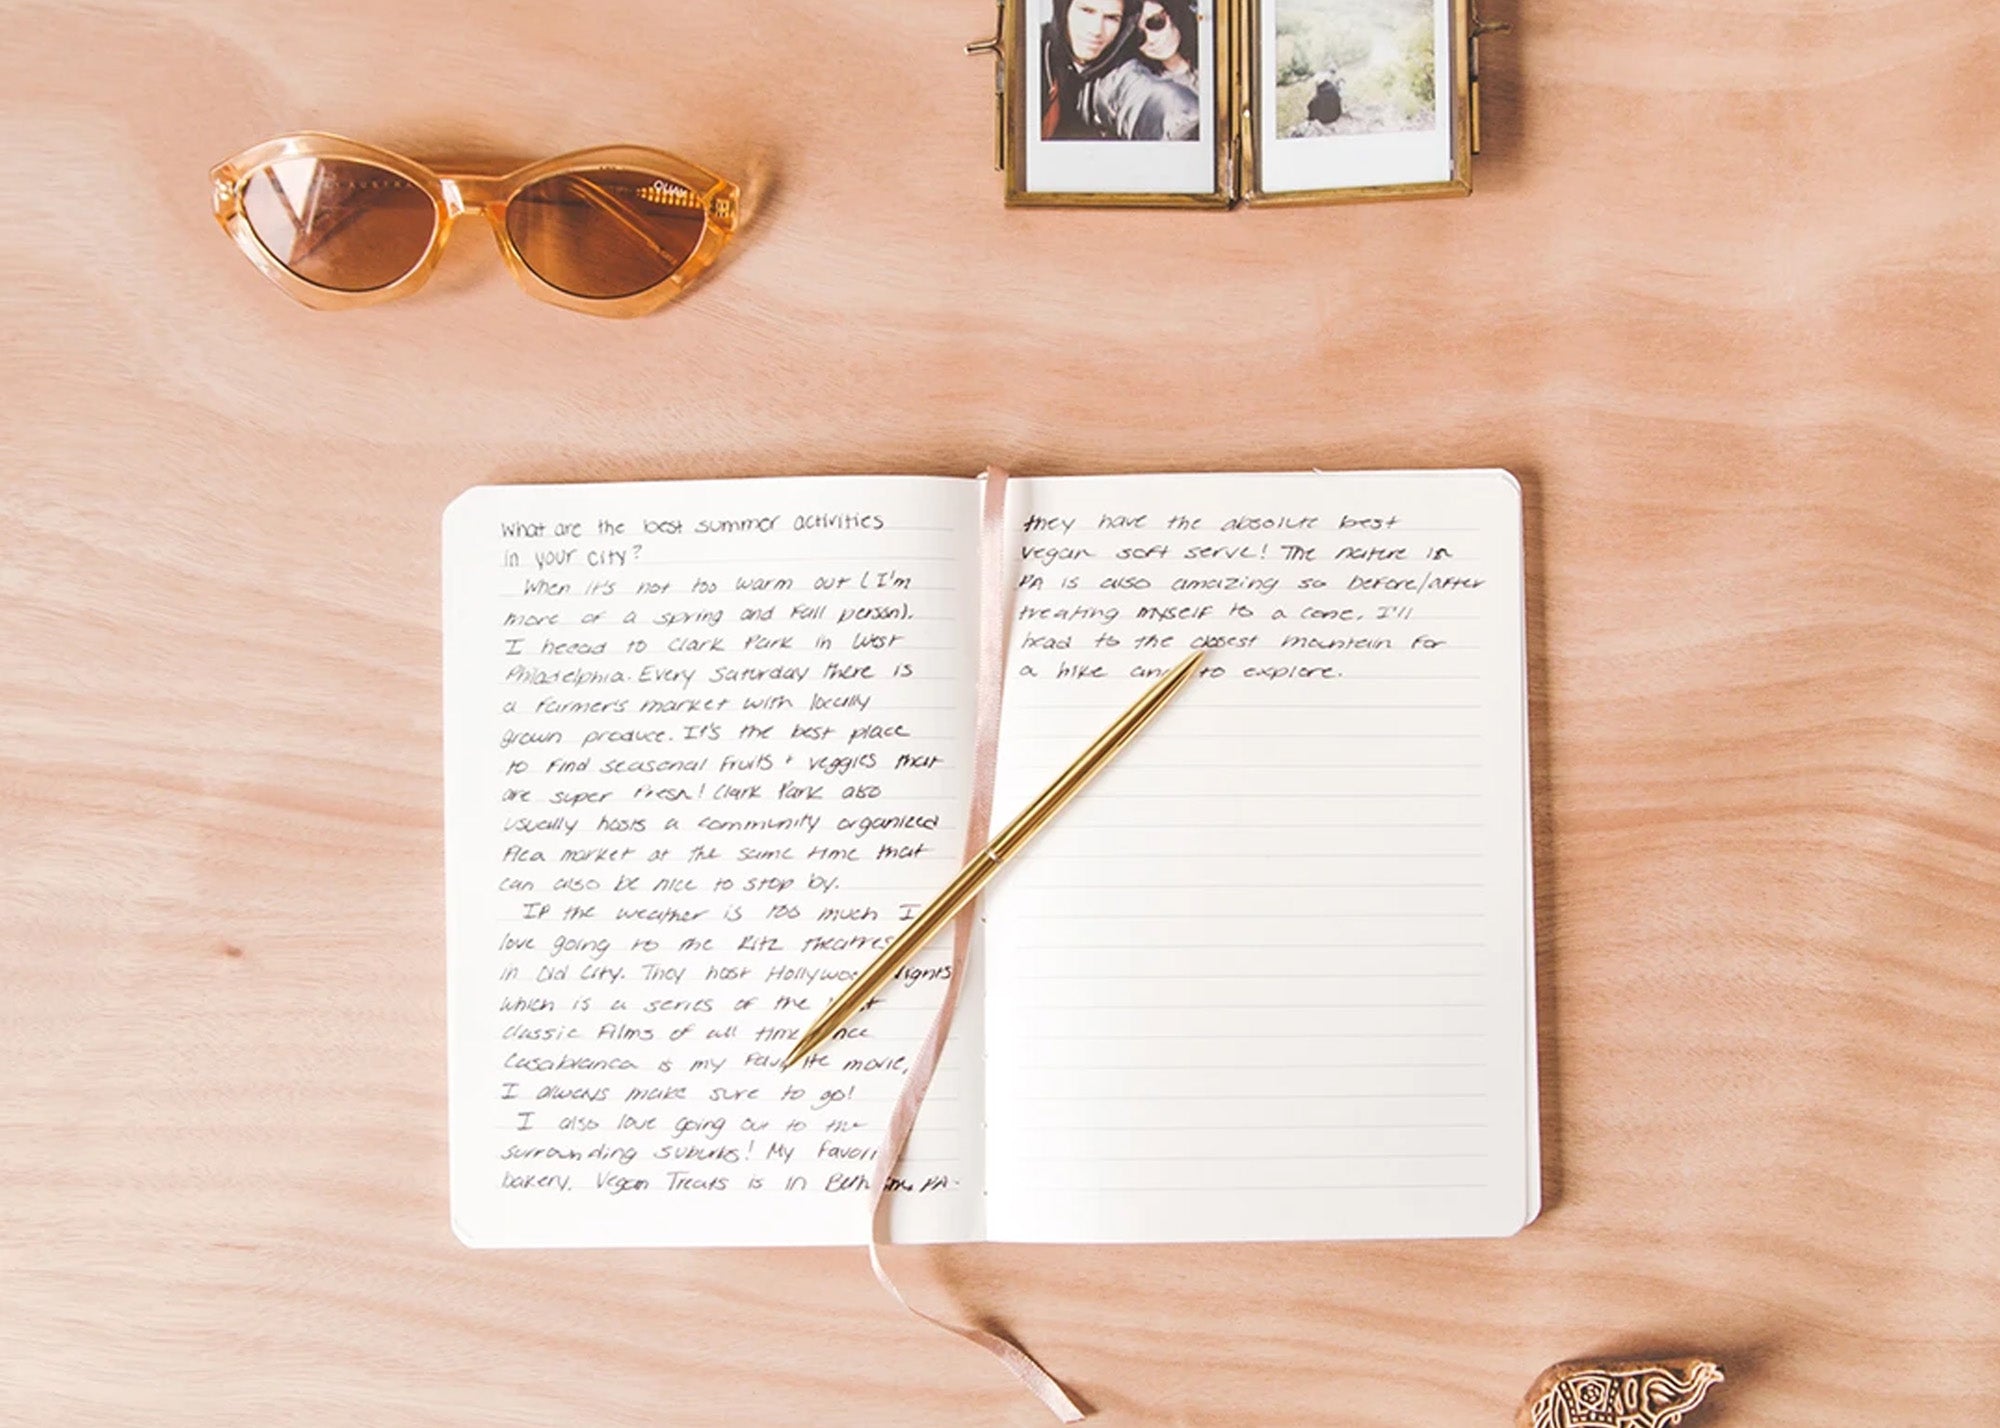 QUAY
AUSTRA
What are the best summer activities
in your city?
When it's not too warm out (I'm
more of a spring and fall person).
I heead to Clark Park in West
Philadelphia. Every Saturday there is
a farmer's market with locally
grown produce. It's the best place
to find seasonal fruits + veggies that
are super fresh! Clark Park also
usually hosts a community organized
flea market at the same time that
can also be nice to stop by.
If the weather is too much I
love going to the Ritz theatres
in Old City. They host Hollywoo nights
which is a series of the
classic films of all time
Casablanca is my favorite movie,
I always make sure to go!
I also love going out to the
surrounding suburbs! My favori
bakery. Vegan Treats is in Beth PA.
they have the absolute best
vegan soft serve! The nature in
PA is also amazing so before/after
treating myself to a cone, I'll
head to the closest mountain for
a hike and to explore.